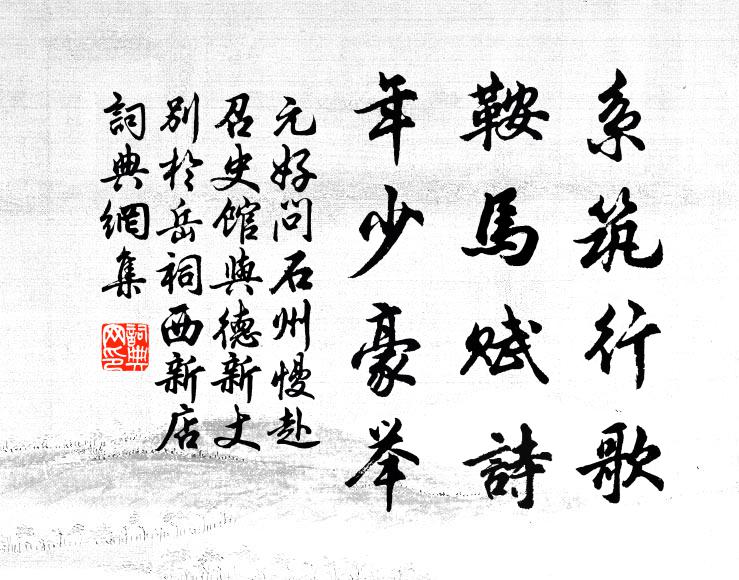 系筑行歌
鞍馬赋詩
年少豪举
元好问石州慢赴
召史館與德新丈
别於岳祠西新店
詞典網集
詞典网印